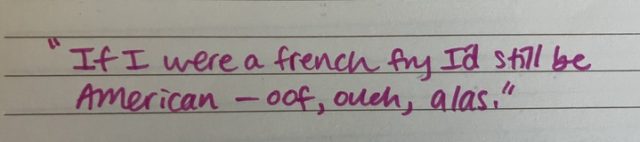 "If I were a french fry I'd still be
American – oof, ouch, alas."